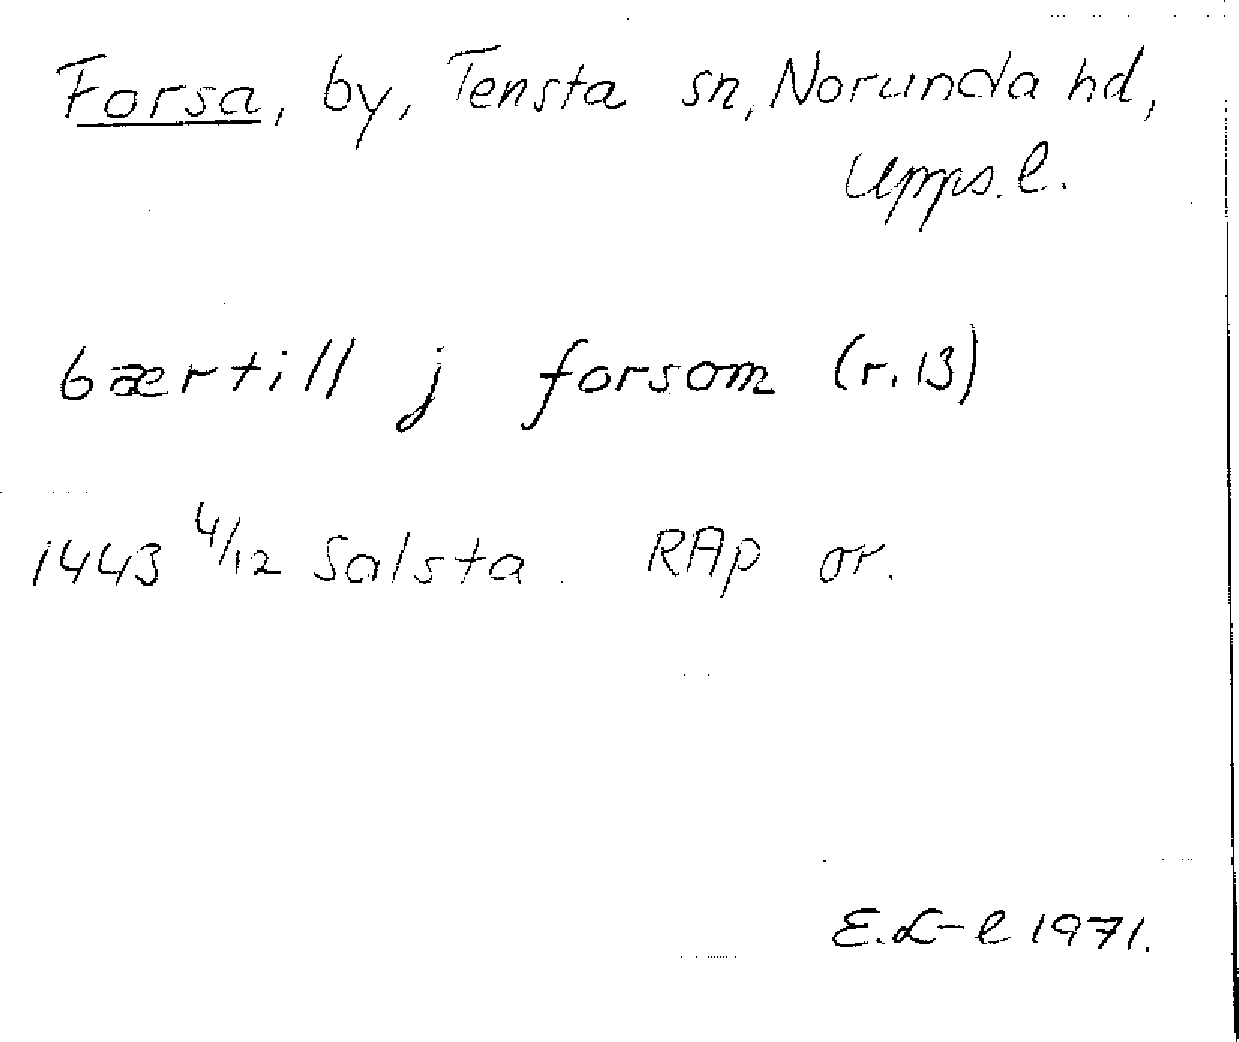 Forsa, by, Tensta sn, Norunda hd,
Upps. l.
bærtill j forsom (r. 13)
1443 4/12 Salsta. RAp or.
E.L-l 1971.